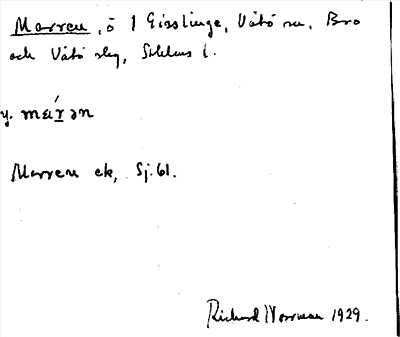 Marren, ö 1 Gisslinge, Vätö sn, Bro
och Vätö slg, Sthlms l.
y. mǽrən
Marren ek, Sj. 61.
Richard Norrman 1929.